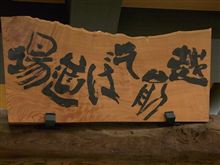 越前そば道場